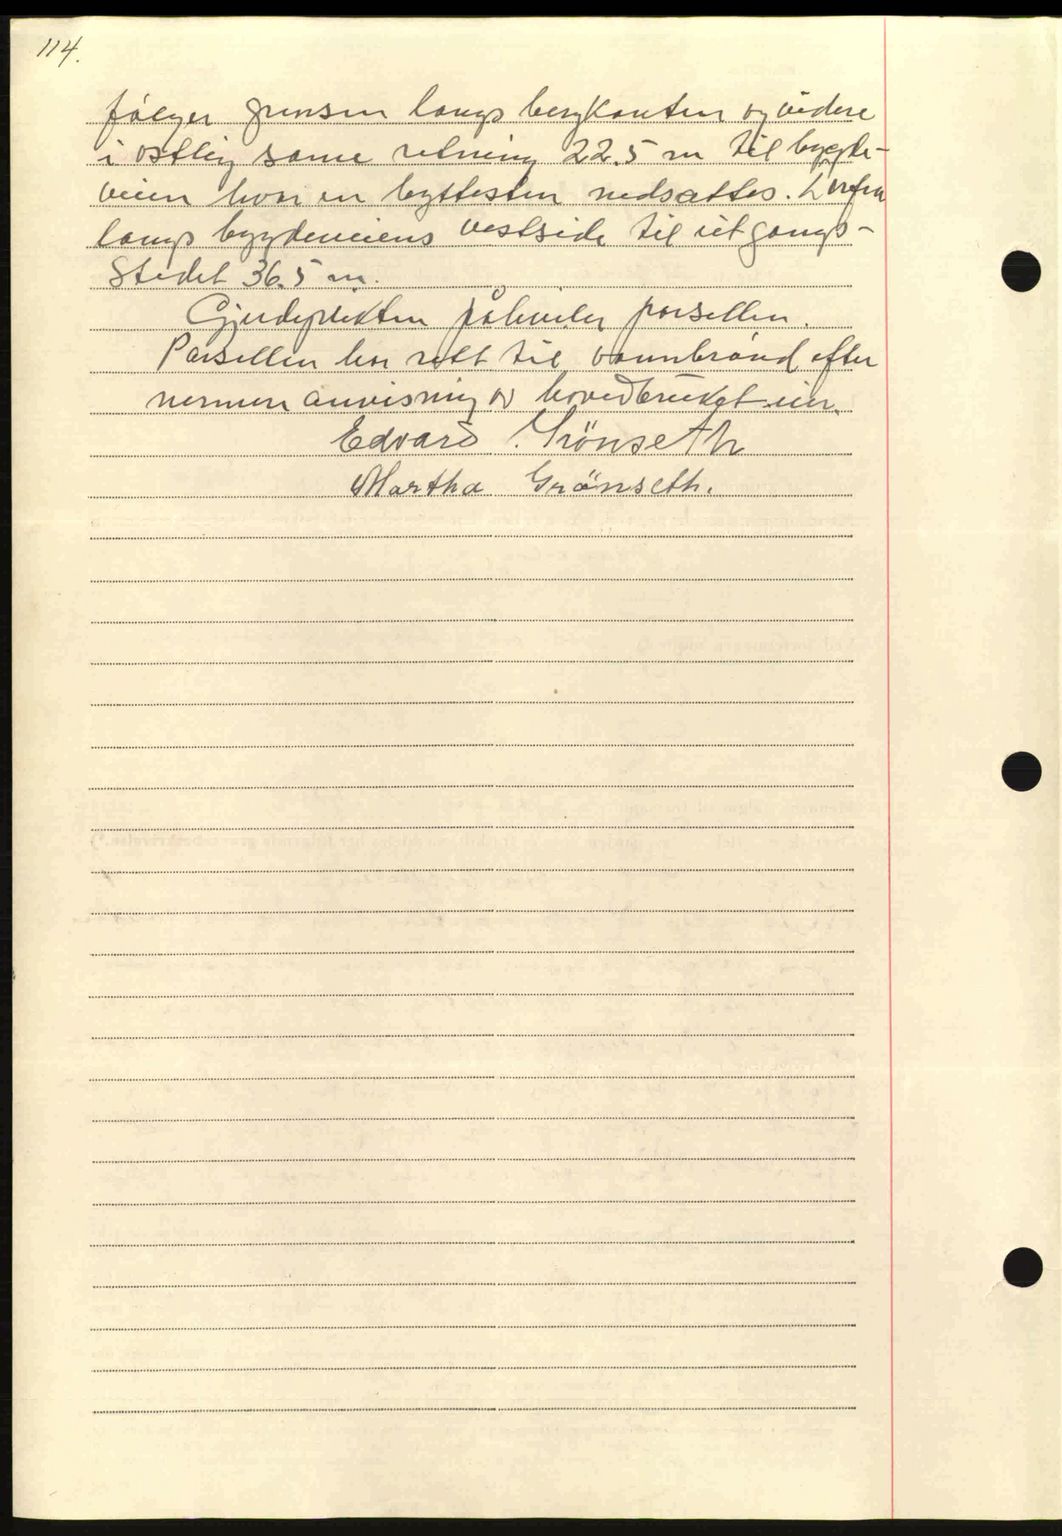 114.
følger grensen langs bergkanten og videre
i østlig same retning 22.5 m til bygde-
veien hvor en byttesten nedsættes. Derfra
langs bygdeveiens vestside til utgangs-
stedet 36.5 m.
Gjerdeplikten påhviler parsellen.
Parsellen har rett til vannbrønd efter
nermere anvisning av hovedbruket eier.
Edvard Grönseth
Martha Grönseth.